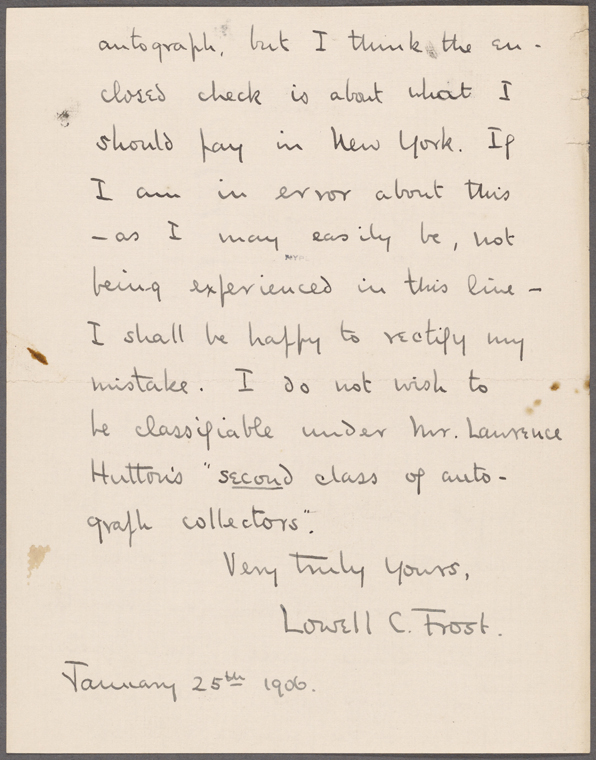 autograph, but I think the en-
closed check is about what I
should pay in New York. If
I am in error about this
— as I may easily be, not
being experienced in this line —
I shall be happy to rectify my
mistake. I do not wish to
be classifiable under Mr. Lawrence
Hutton's "second class of auto-
graph collectors".
Very truly yours,
Lowell C. Frost.
January 25th 1906.